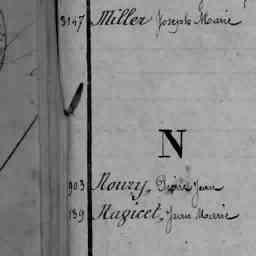 3147 Miller Joseph Marie
N
903 Noury, Désiré Jean
139 Nagicet, Jean Marie